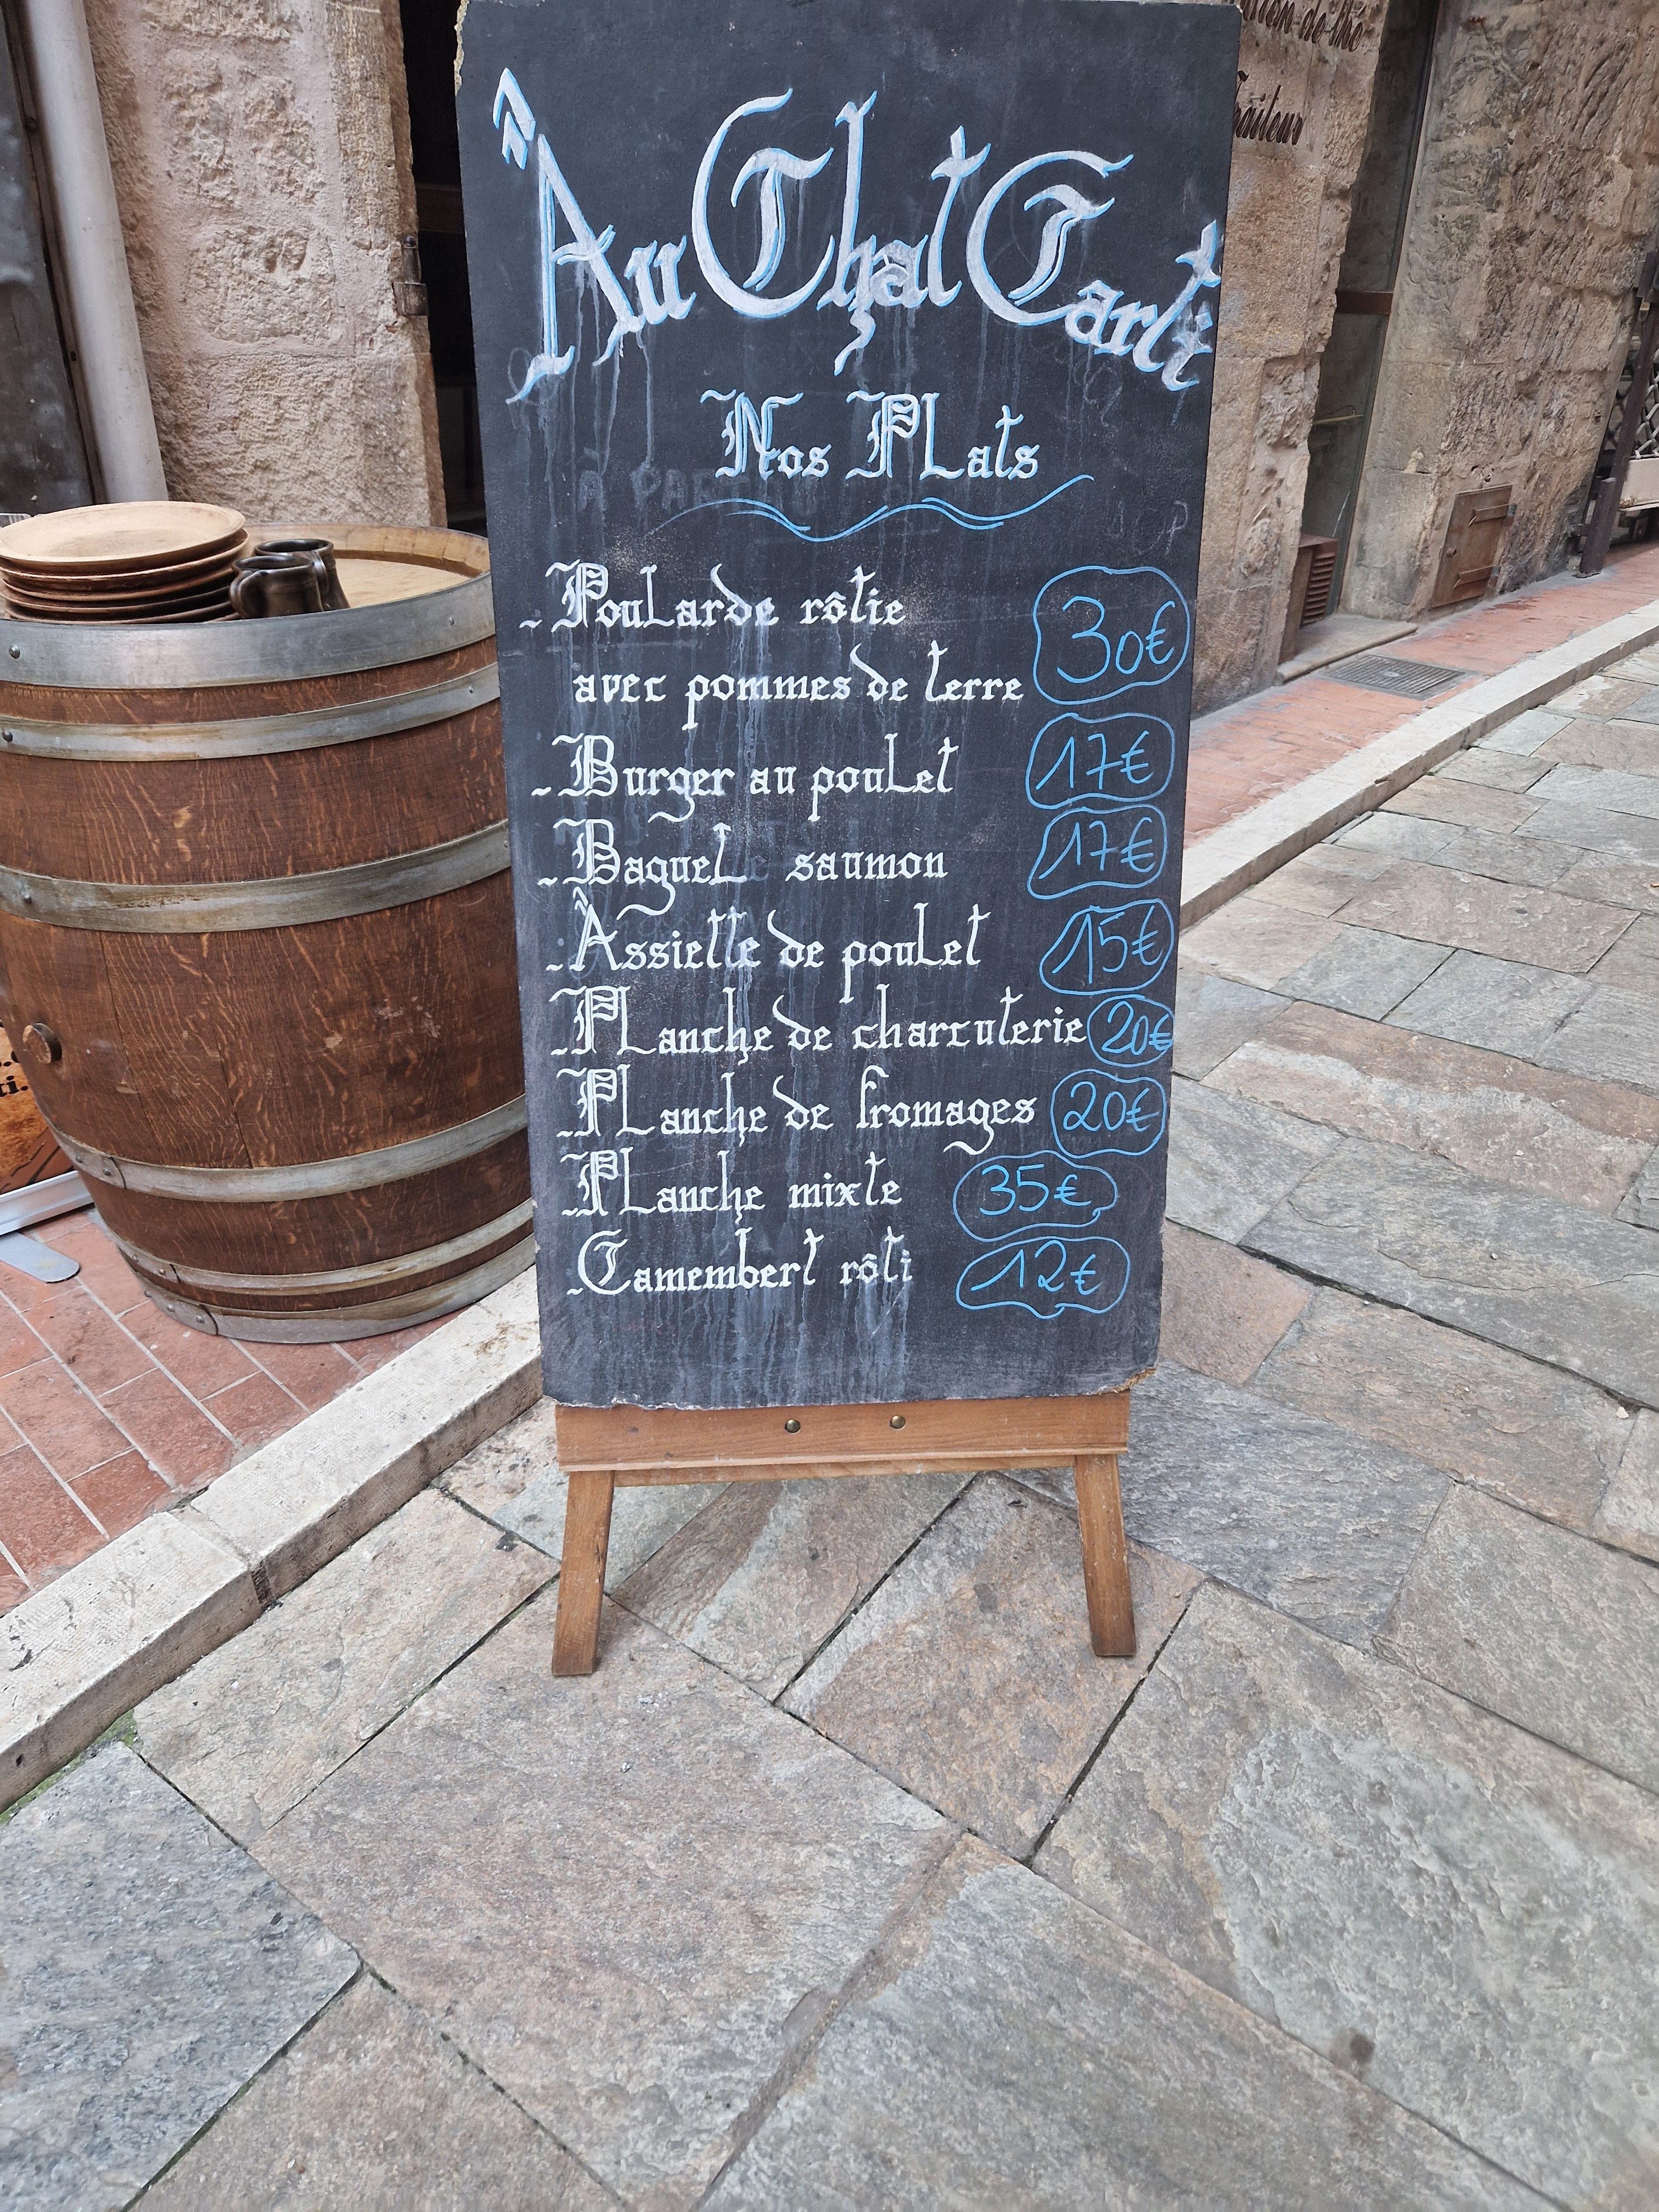 Au Chat Carli
Nos Plats
- Poularde rôtie
avec pommes de terre 30€
- Burger au poulet 17€
- Baguette saumon 17€
- Assiette de poulet 15€
- Planche de charcuterie 20€
- Planche de fromages 20€
- Planche mixte 35€
- Camembert rôti 12€